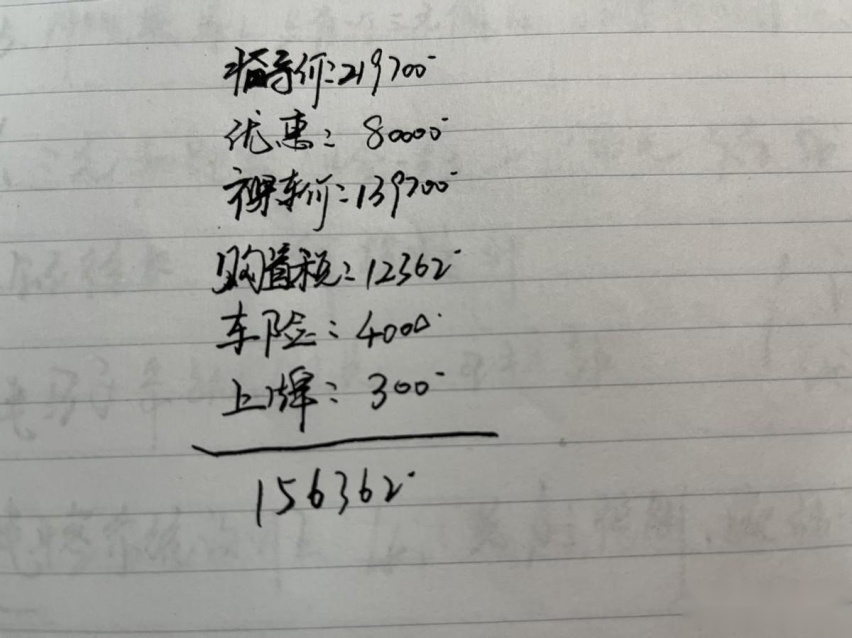 指导价:219700
优惠: 80000
裸车价:139700
购置税:12362
车险: 4000
上牌: 300
156362